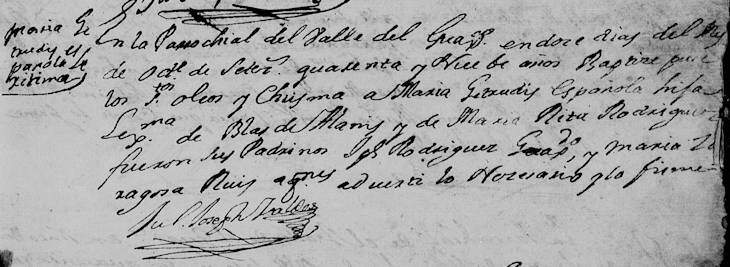 Maria Ge
trudis es
pañola Le
gitima
En la Parrochial del Valle del Guaxe. en doze dias del Mes
de Oct. de Setecs. quarenta y Nuebe años Baptize puse
los Stos. oleos y Chrisma a Maria Getrudis Española hija
Lexma. de Blas de Alanis y de Maria Rita Rodriguez
fueron sus Padrinos Jph Rodriguez Guaxdo, y Maria Za
ragosa Ruis a qnes advertí lo Nesesario y lo firme
Joseph